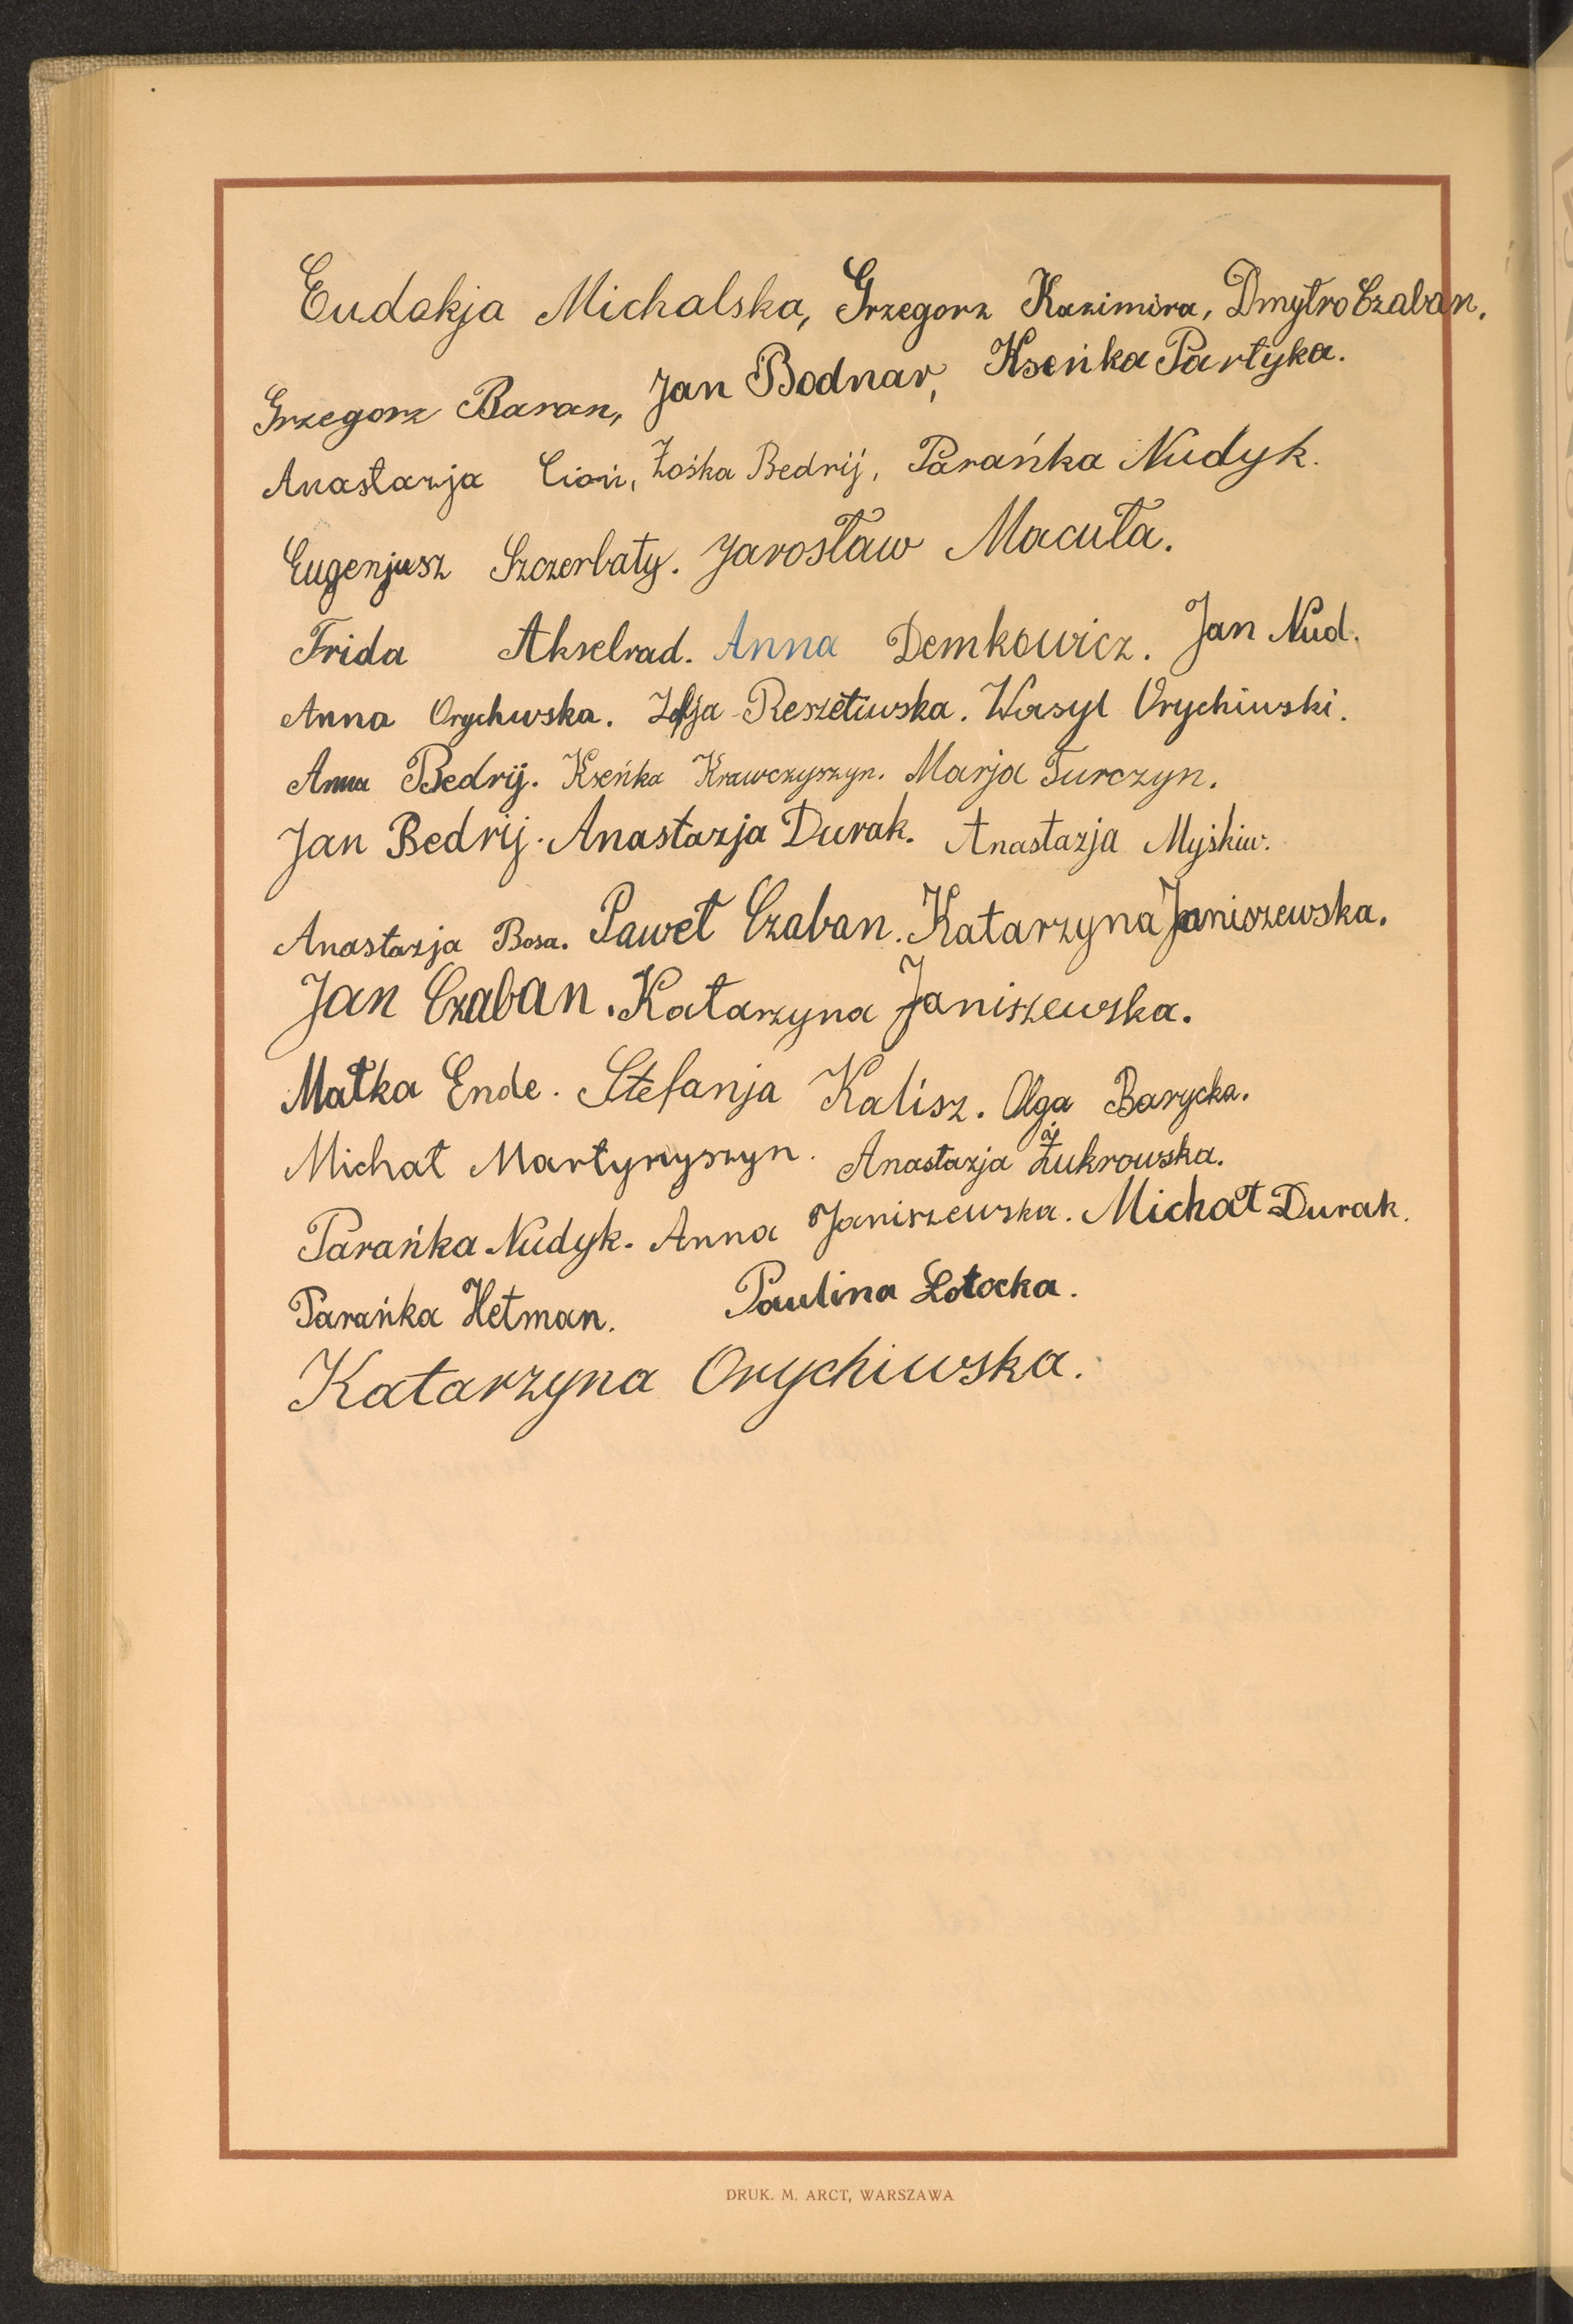 Eudokja Michalska, Grzegorz Kazimira, Dmytro Czaban.
Grzegorz Baran, Jan Bodnar, Kseńka Partyka.
Anastazja Cioń, Zośka Bedrij, Parańka Nudyk.
Eugenjusz Szczerbaty. Jarosław Macuła.
Frida Akselrad. Anna Demkowicz. Jan Nud.
Anna Orychwska. Zofja Reszetiwska. Wasyl Orychiwski.
Anna Bedrij. Kseńka Krawczyszyn. Marja Turczyn.
Jan Bedrij. Anastazja Durak. Anastazja Myśkiw.
Anastazja Bosa. Paweł Czaban. Katarzyna Janiszewska.
Jan Czaban. Katarzyna Janiszewska.
Małka Ende. Stefanja Kalisz. Olga Barycka.
Michał Martynyszyn. Anastazja Żukrowska.
Parańka Nudyk. Anna Janiszewska. Michał Durak.
Parańka Hetman. Paulina Łotocka.
Katarzyna Orychiwska.
DRUK. M. ARCT, WARSZAWA